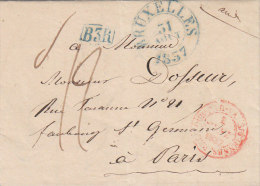 BRUXELLES
31
1837
B3R
à Monsieur
Monsieur Dosseur,
Rue Taranne Nº 21
faubourg St Germain
à Paris